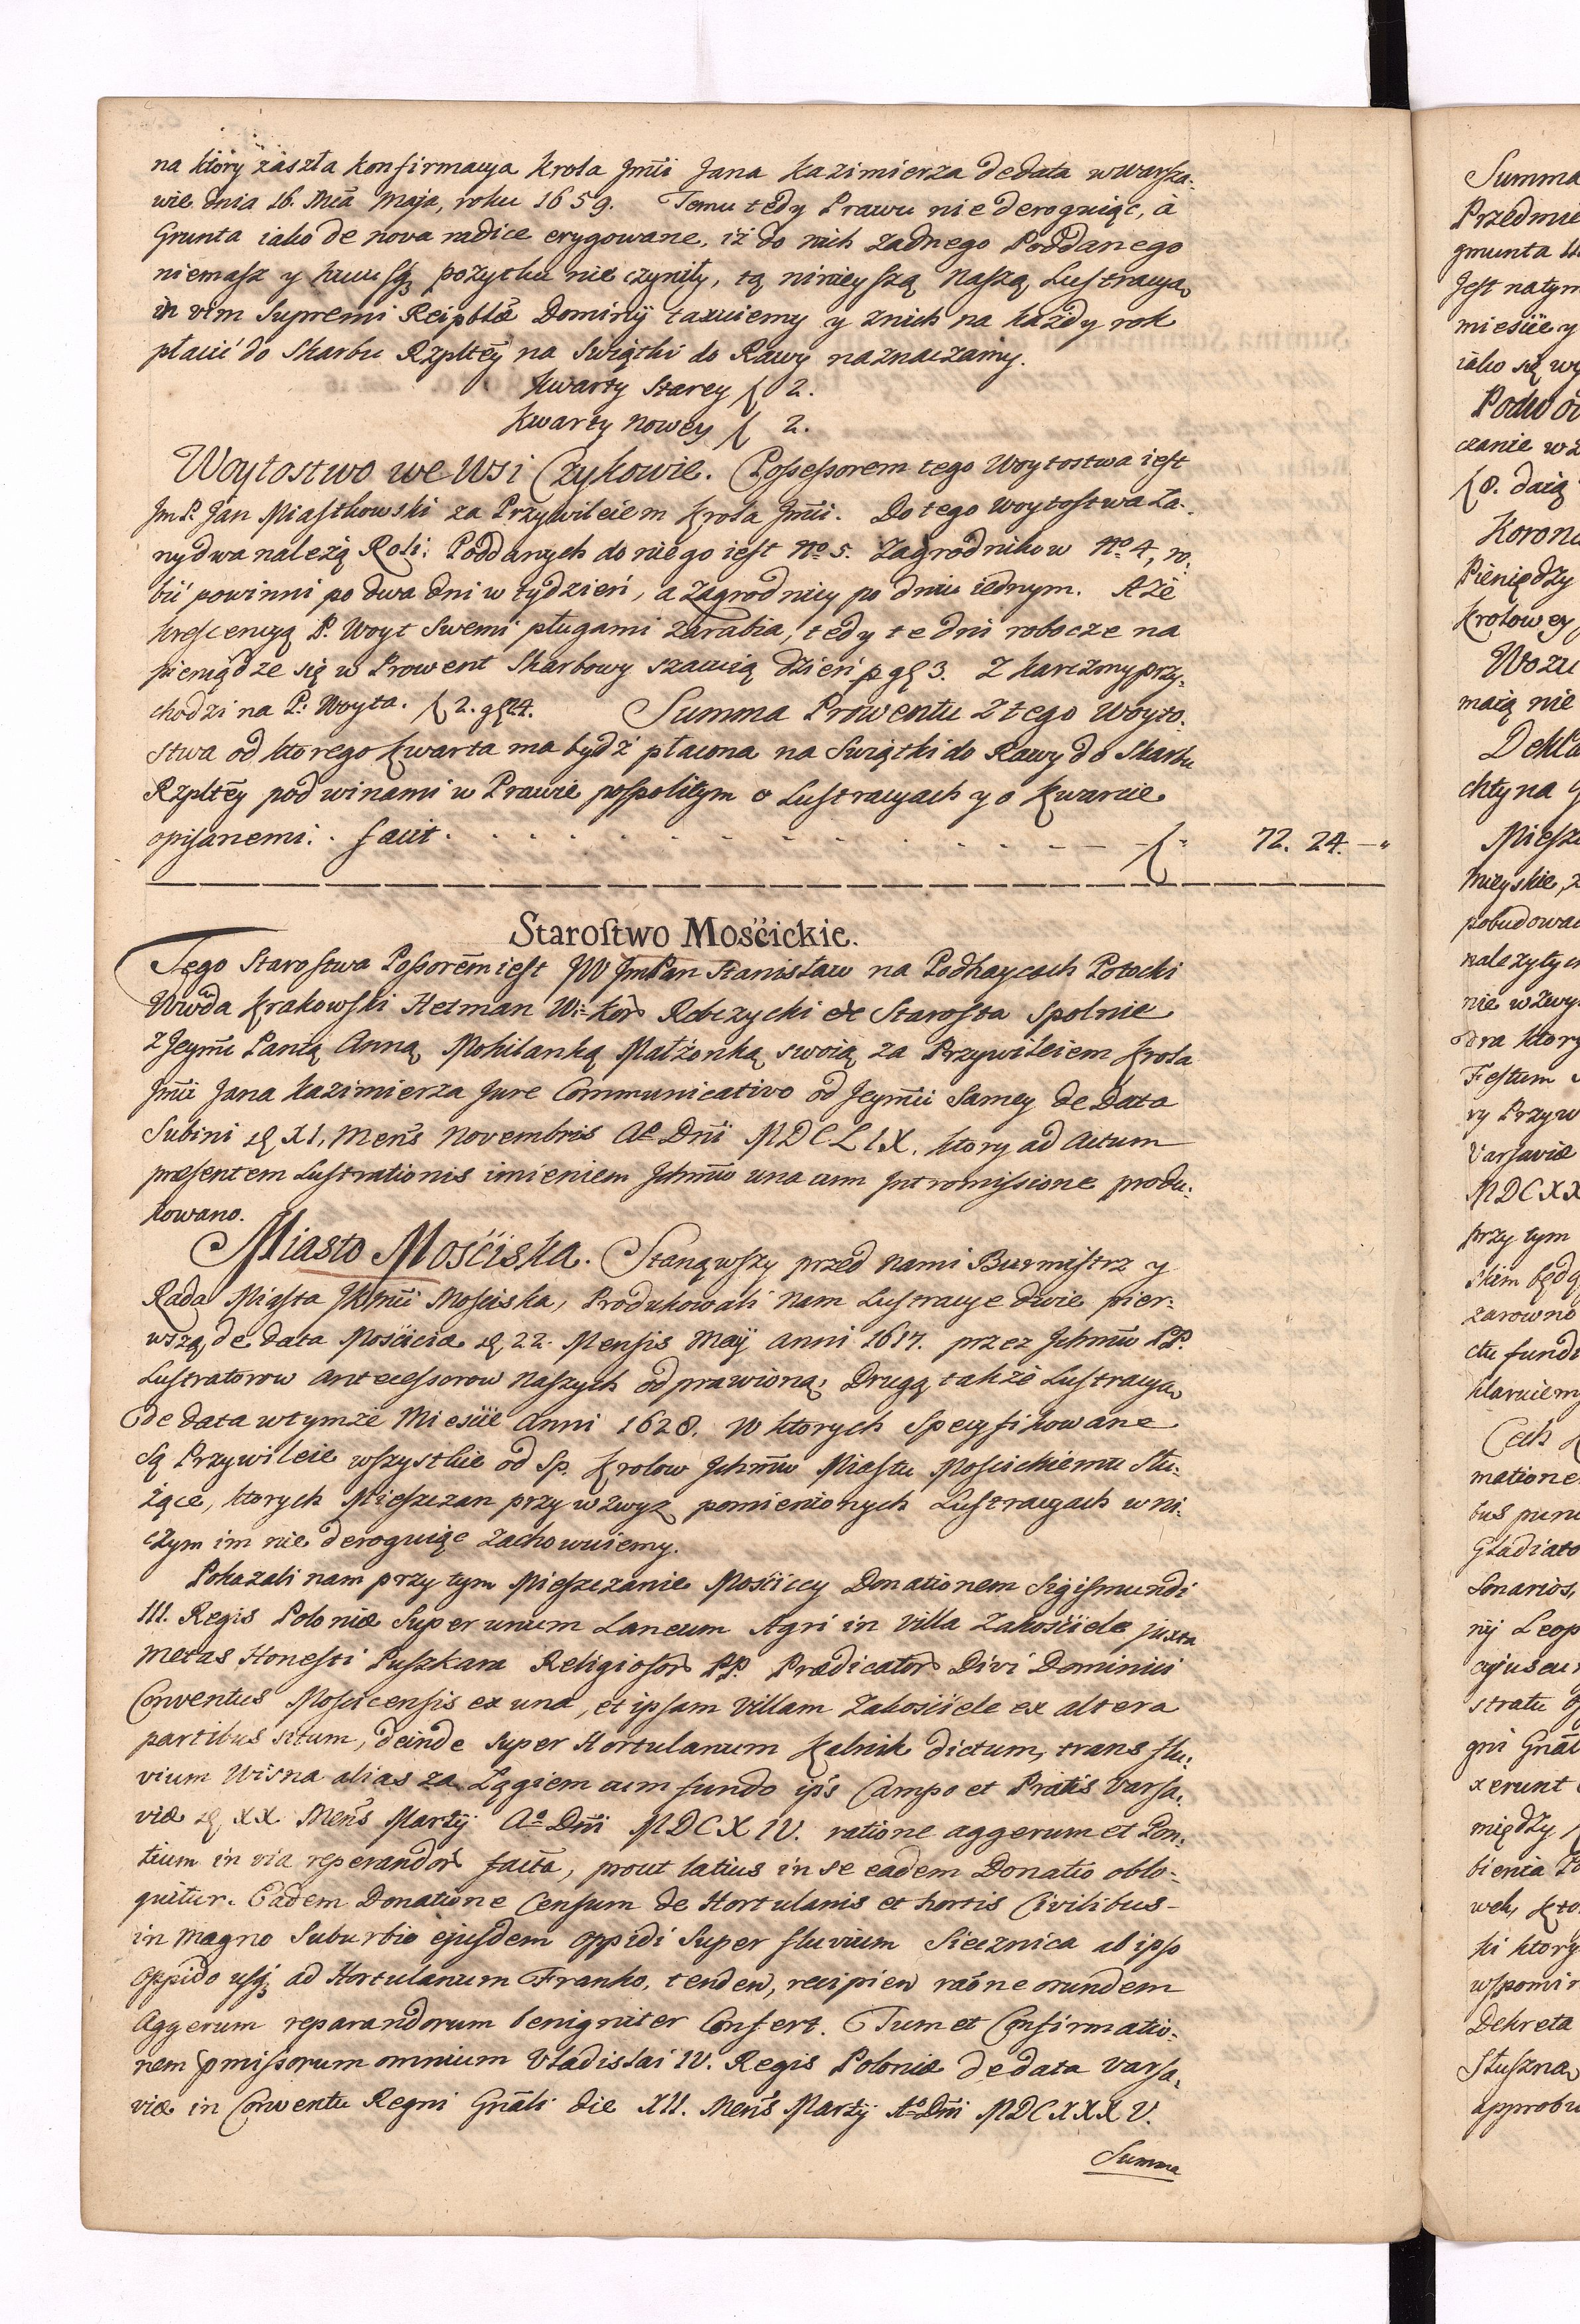 na ktory zaszła konfirmacya Krola Jmći Jana Kazimierza de data w Warsza-
wie dnia 16. Mca Maja, roku 1659. Temu tedy Prawu nie deroguiąc, a
Grunta iako de nova radice erygowane, iż do nich żadnego Poddanego
niemasz y huius[que] pożytku nie czyniły, tą ninieyszą naszą Lustracyą
in vim Supremi Reipblæ Dominij taxuiemy y z nich na każdy rok
płacić do Skarbu Rzpltey na Swiątki do Rawy naznaczamy.
Kwarty Starey ƒ 2.
Kwarty Nowey ƒ 2.
Woytostwo we Wsi Czykowie. Possessorem tego Woytostwa iest
Jm P. Jan Miastkowski za Przywileiem Krola Jmći. Do tego Woytostwa Ła-
ny dwa należą Roli: Poddanych do niego iest No 5. Zagrodnikow No 4, ro-
bić powinni po dwa dni w tydzień, a Zagrodnicy po dniu iednym. A że
krescencyą P. Woyt Swemi pługami zarabia, tedy te dni robocze na
pieniądze się w Prowent Skarbowy szacuią dzień p gł 3. Z karczmy przy-
chodzi na P. Woyta. ƒ 2. gł 24. Summa Prowentu z tego Woyto-
stwa od ktorego kwarta ma bydź płacona na Swiątki do Rawy do Skarbu
Rzpltey pod winami w Prawie pospolitym o Lustracyach y o Kwarcie
opisanemi. facit ƒ 72. 24. —
Starostwo Mościckie.
Tego Starostwa Possorem iest JW JmPan Stanisław na Podhaycach Potocki
Wwda Krakowski Hetman W. Kor. Robczycki etc Starosta Spolnie
z Jeymć Panią Anną Mohilanką Małżonką swoią za Przywileiem Krola
Jmći Jana Kazimierza Jure Communicativo od Jeymći Samey de Data
Subini d. XI, Mens Novembris Ao Dni MDCLIX. ktory ad Actum
præsentem Lustrationis imieniem Jchmciow una cum Intromissione produ-
kowano.
Miasto Mościska. Stanąwszy przed nami Burmistrz y
Rada Miasta JKMci Mosciska, Produkowali nam Lustracye dwie pier-
wszą de data Mościcia d. 22. Mensis Maij anni 1617. przez Jchmciow PP.
Lustratorow Antecessorow Naszych odprawioną, Drugą także Lustracyą
de data w tymże Miescie anni 1628. w ktorych Specyfikowane
są Przywileie wszystkie od Sp. Krolow Jchmciow Miastu Moscickiemu Słu-
żące, ktorych Mieszczan przy w zwyż pomienionych Lustracyach w ni-
czym im nie deroguiąc zachowuiemy.
Pokazali nam przy tym Mieszczanie Mościccy Donationem Sigismundi
III. Regis Poloniæ Super unum Laneum Agri in Villa Zakościele juxta
metas Honesti Puszkara Religiosor. PP. Prædicator. Divi Dominici
Conventus Moscicensis ex una, et ipsam Villam Zakościele ex altera
partibus situm, deinde super Hortulanum Kalnik dictum, trans flu-
vium Wisna alias za Łągiem cum fundo ips Campo et Pratis Varsa-
viæ d. XX Mens Martij Ao Dni MDCXIV. ratione aggerum et Pon-
tium in via reperandor. facta, prout latius in se eadem Donatio oblo-
quitur. Eadem Donatione Censum de Hortulanis et hortis Civilibus
in magno Suburbio ejusdem Oppidi Super fluvium Siecznica ab ipso
Oppido usq ad Hortulanum Franko, tenden, recipien raone orundem
Aggerum reparandorum benigniter Confert. Tum et Confirmatio-
nem pmissorum omnium Vladislai IV. Regis Poloniæ de data Varsa-
viæ in Conventu Regni Gnali die XII. Mens Martij Ao Dni MDCXXXV.
Summa